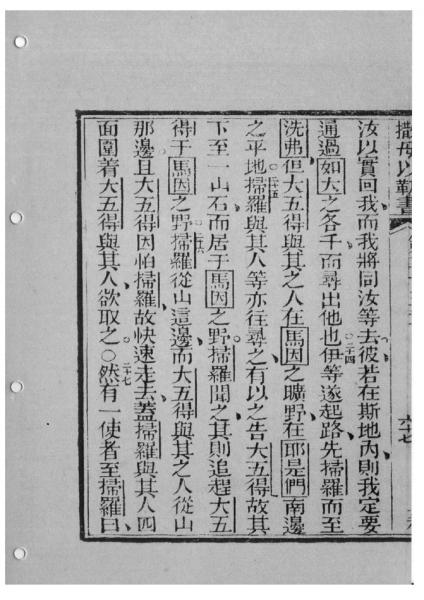 撒母以勒書
六十七
汝以實回我而我將同汝等去彼若在斯地內則我定要
通過如大之各千而尋出他也○二十四伊等遂起路先掃羅而至
洗弗但大五得與其之人在馬因之曠野在耶是們南邊
之平地○二十五掃羅與其人等亦往尋之有以之告大五得故其
下至一山石而居于馬因之野掃羅聞之其則追趕大五
得于馬因之野○二十六掃羅從山這邊而大五得與其之人從山
那邊且大五得因怕掃羅故快速走去蓋掃羅與其人四
面圍着大五得與其人欲取之○二十七然有一使者至掃羅曰